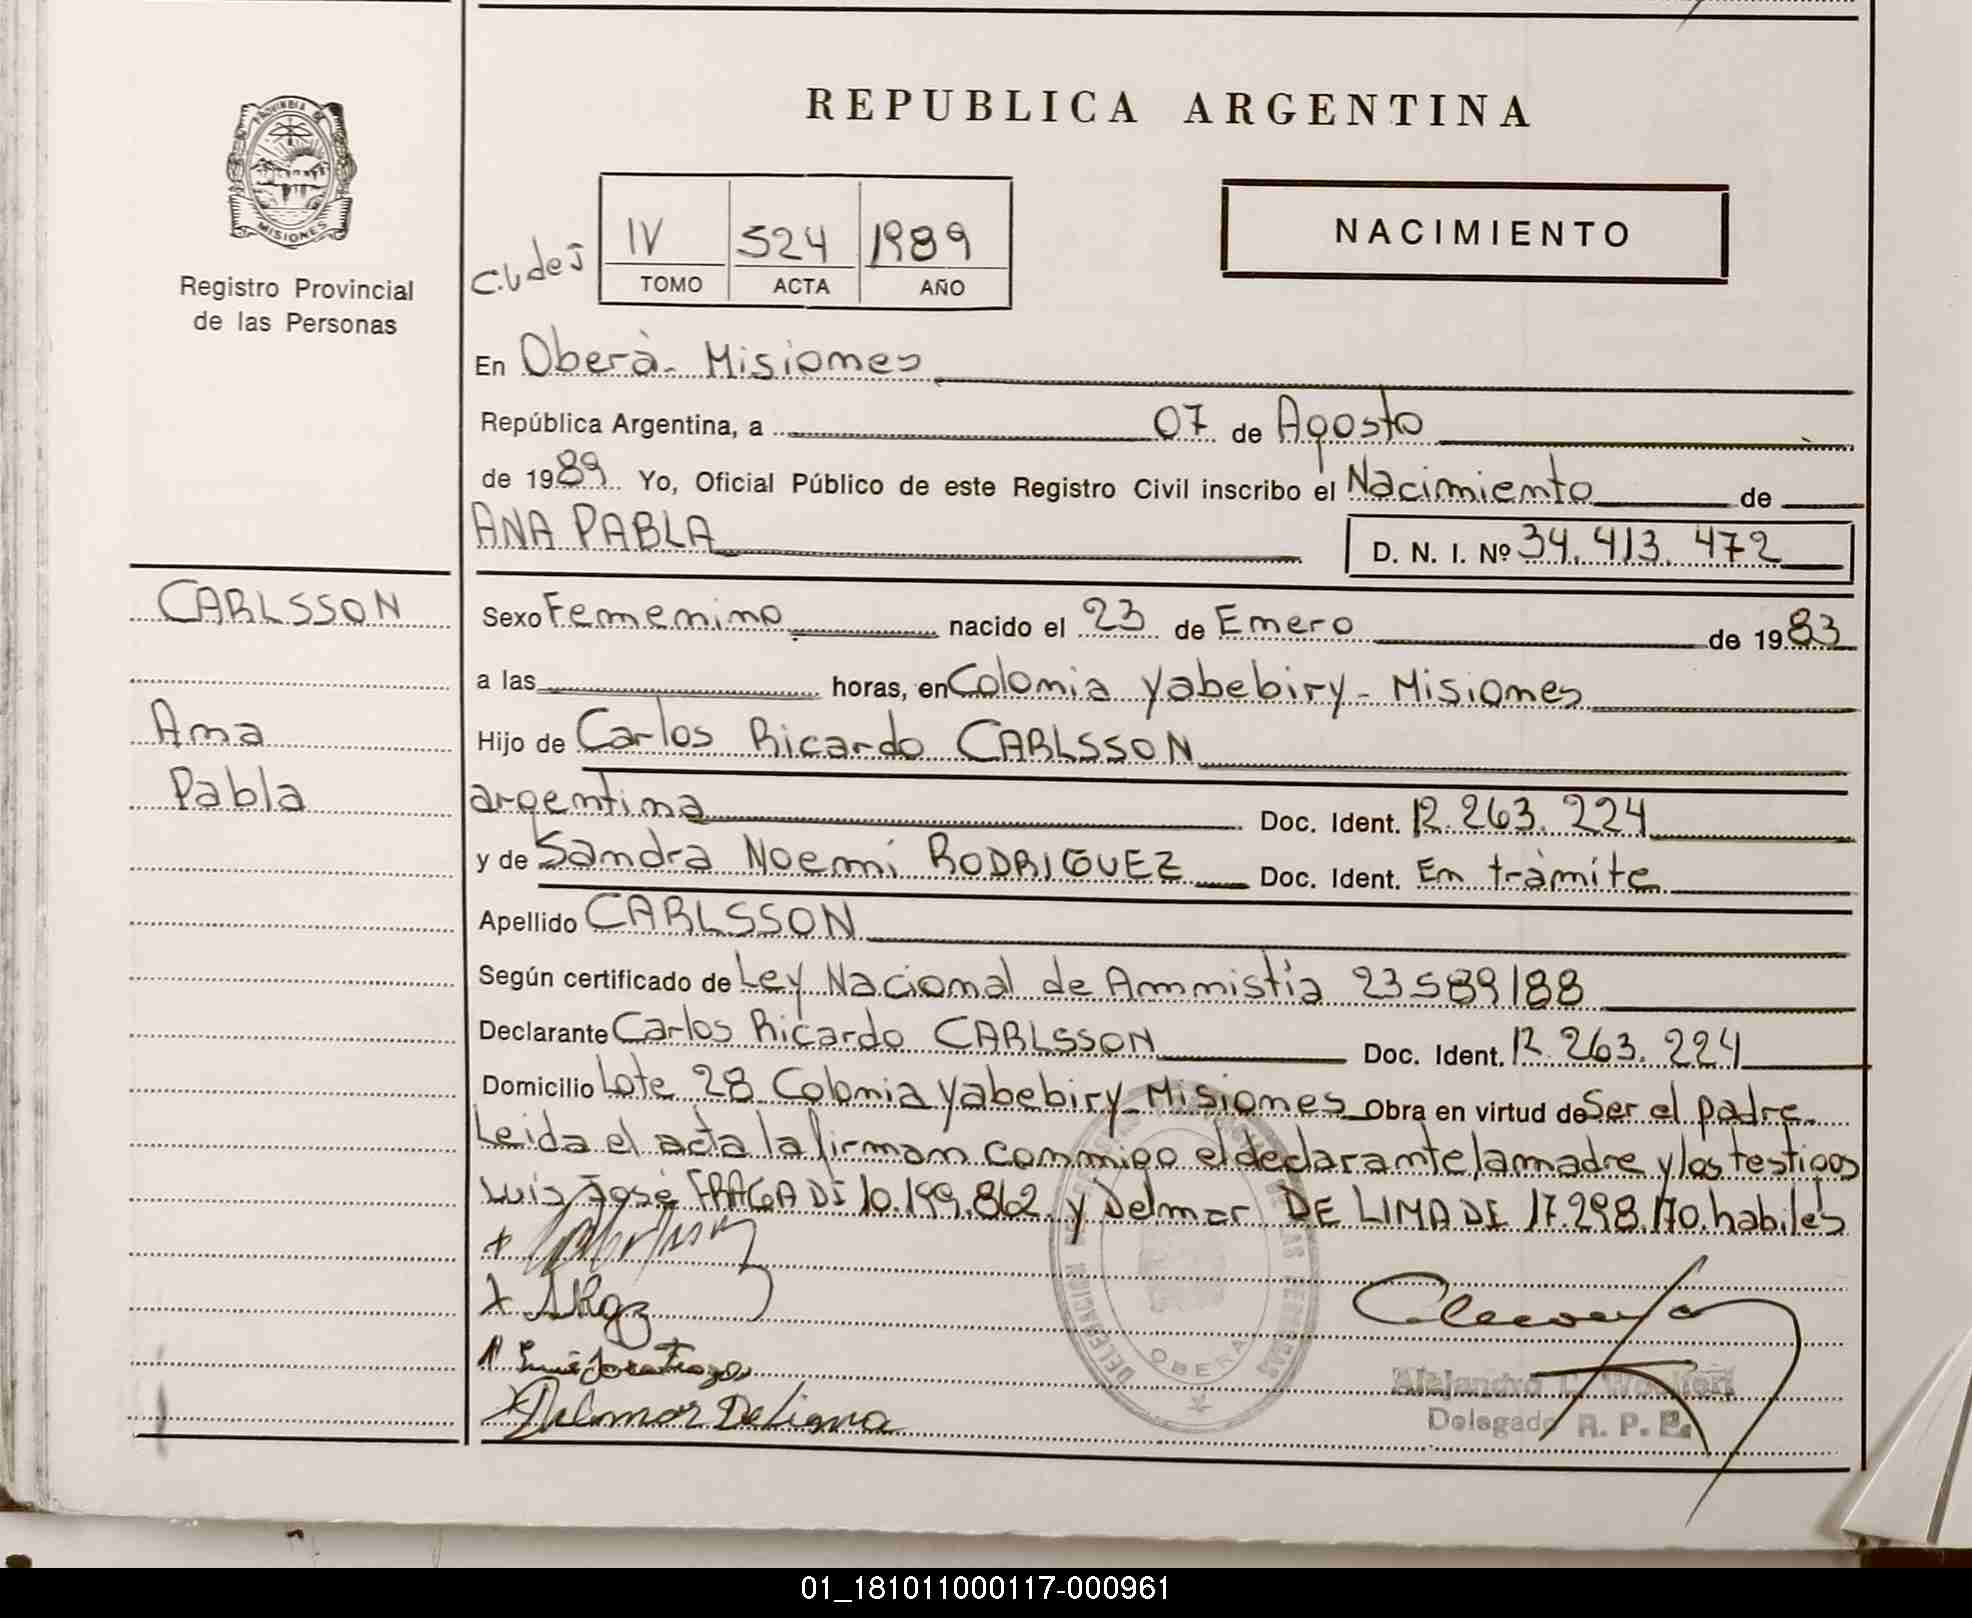 REPUBLICA ARGENTINA
PROVINCIA DE
MISIONES
Registro Provincial
de las Personas
IV 524 1989
TOMO ACTA AÑO
NACIMIENTO
En Oberà - Misiones
República Argentina, a 07 de Agosto
de 1989 Yo, Oficial Público de este Registro Civil inscribo el Nacimiento de
ANA PABLA D. N. I. Nº 34.413.472
CARLSSON
Ana
Pabla
Sexo Femenino nacido el 23 de Enero de 1983
a las horas, en Colonia Yabebiry - Misiones
Hijo de Carlos Ricardo CARLSSON
argentina Doc. Ident. 12.263.224
y de Sandra Noemi RODRIGUEZ Doc. Ident. En tràmite
Apellido CARLSSON
Según certificado de Ley Nacional de Amnistía 23589/88
Declarante Carlos Ricardo CARLSSON Doc. Ident. 12.263.224
Domicilio Lote 28 Colonia Yabebiry - Misiones Obra en virtud de Ser el padre.
Leida el acta la firman conmigo el declarante, la madre y los testigos
Luis José FRAGA DI 10.199.862 y Delmar DE LIMA DI 17.298.170. habiles
DELEGACION
OBERA
Delmar De Lima
Delegado R. P. P.
01_181011000117-000961